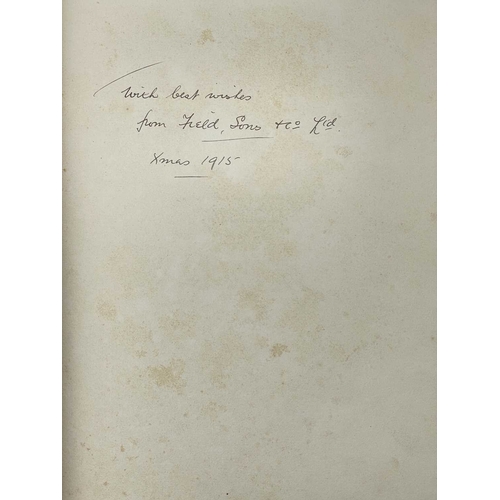 With best wishes
from Field, Sons & Co Ltd.
Xmas 1915